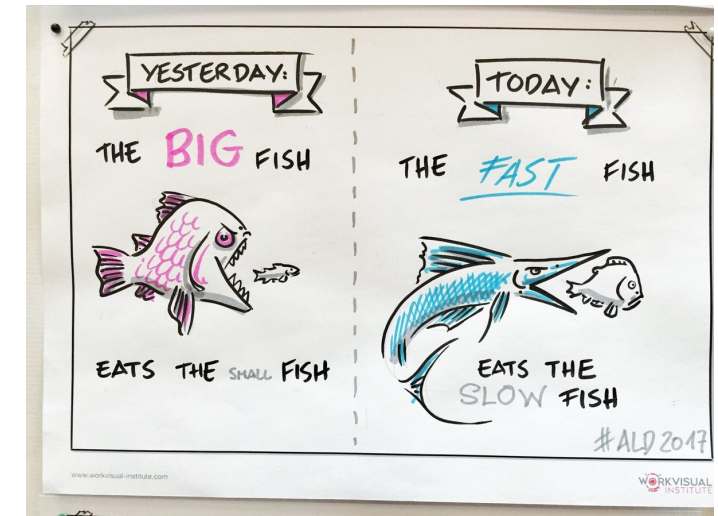 YESTERDAY:
THE BIG FISH
EATS THE SMALL FISH
TODAY:
THE FAST FISH
EATS THE
SLOW FISH
#ALD2017
www.workvisual-institute.com
WORKVISUAL
INSTITUTE